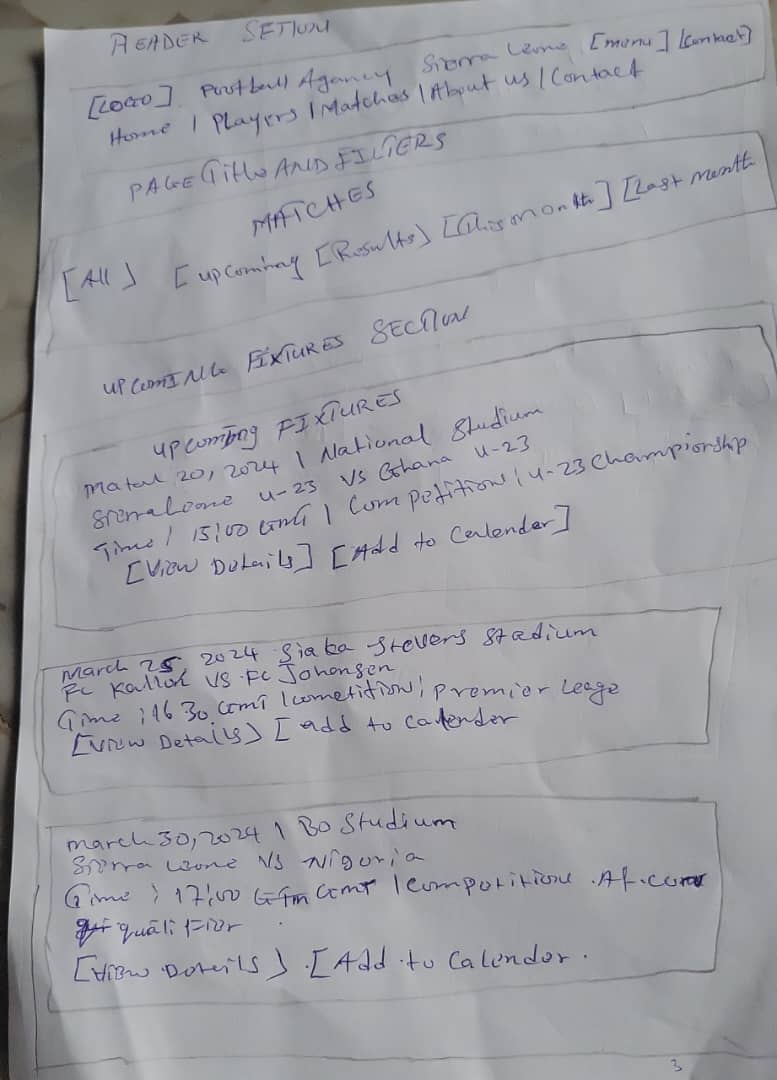 HEADER SETION
[LOGO] Football Agancy Sierra Leone [menu] [contact]
Home | Players | Matches | About us | Contact
PAGE Title AND FILTERS
MATCHES
[All] [upcoming [Results] [This month] [Last month
UPCOMING FIXTURES SECTION
upcoming FIXTURES
20, 2024 | National Studium
Sierra Leone u-23 VS Ghana u-23
Time | 15:00 GMT | Competition | u-23 Championship
[View Details] [Add to Calender]
March 25, 2024 Siaka Stevens Stadium
Fc Kallon VS Fc Johansen
Time : 16 30 GMT | cometition : premier leage
[View Details) [add to calender
march 30, 2024 | Bo Studium
Sierra Leone VS Nigeria
Time : 17:00 GMT | compotition
qualifier
[View Details] [Add to Calender.
3